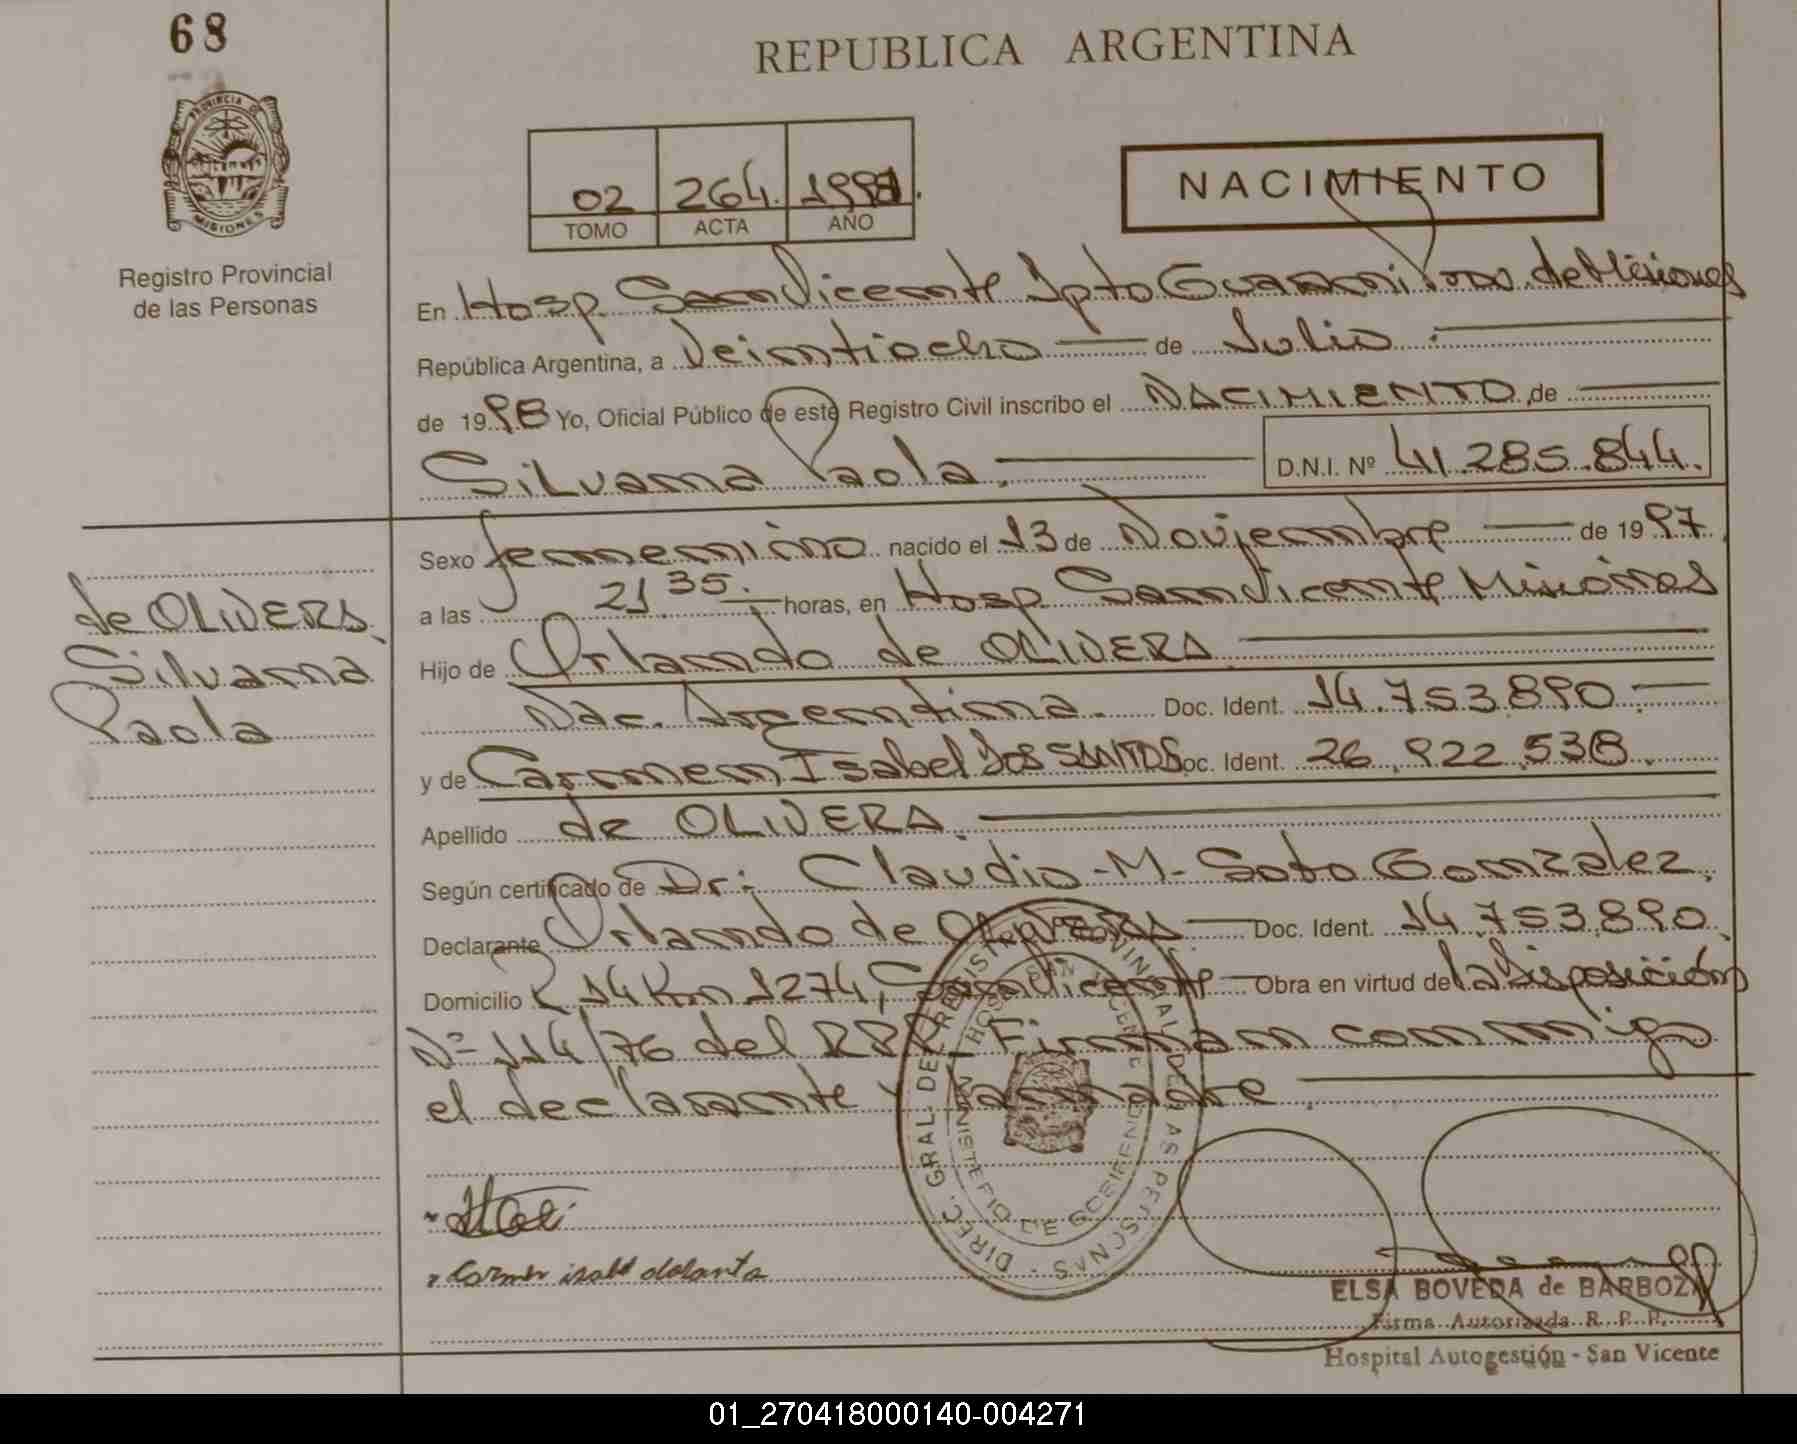 68
REPUBLICA ARGENTINA
PROVINCIA DE
MISIONES
Registro Provincial
de las Personas
02 264. 1998.
TOMO ACTA AÑO
NACIMIENTO
En Hosp. San Vicente Dpto Guarani Prov. de Misiones
República Argentina, a Veintiocho de Julio.
de 1998 Yo, Oficial Público de este Registro Civil inscribo el NACIMIENTO, de
Silvana Paola. D.N.I. Nº 41.285.844.
de OLIVERA
Silvana
Paola
Sexo femenino nacido el 13 de Noviembre de 1997.
a las 21 35. horas, en Hosp. San Vicente Misiones
Hijo de Orlando de OLIVERA
Nac. Argentina. Doc. Ident. 14.753.890.
y de Carmen Isabel DOS SANTOS Doc. Ident. 26.922.538.
Apellido de OLIVERA.
Según certificado de Dr: Claudio-M-Soto Gonzalez.
Declarante Orlando de OLIVERA Doc. Ident. 14.753.890.
Domicilio R 14 Km 1274, San Vicente Obra en virtud de la Disposición
Nº 114/76 del RPP. Firman conmigo
el declarante y la madre.
DIREC. GRAL DEL REGISTRO PROVINCIAL DE LAS PERSONAS
HOSP. SAN VICENTE
MINISTERIO DE GOBIERNO
ELSA BOVEDA de BARBOZA
Firma Autorizada R. P. P.
Hospital Autogestión - San Vicente
01_270418000140-004271